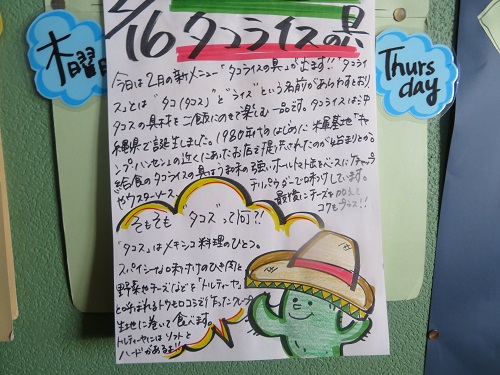 2/16 タコライスの具
木曜日
Thurs
day
今日は2月の新メニュー「タコライスの具」が出ます!!"タコライ
ス"とは"タコ(タコス)"と"ライス"という名前があらわすとおり
タコスの具材をご飯にのせて楽しむ一品です。タコライスは沖
縄県で誕生しました。1980年代のはじめに米軍基地「キャ
ンプ・ハンセン」の近くにあったお店で提供されたのが始まりとか。
給食のタコライスの具はうま味の強いホールトマトをベースにケチャップ
やウスターソース、チリパウダーで味つけしています。
最後にチーズを加えて
コクもプラス!!
そもそも"タコス"って何?!
"タコス"はメキシコ料理のひとつ。
スパイシーな味付けのひき肉と
野菜やチーズなどを「トルティーヤ」
とよばれるトウモロコシで作ったクレープ
生地に巻いて食べます。
トルティーヤにはソフトと
ハードがあるよ!!